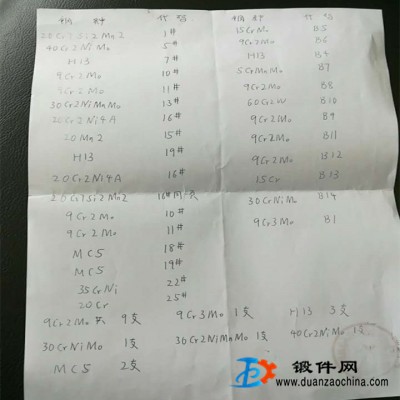 钢种 代号
20Cr2Si2Mn2 1#
40Cr2NiMo 5#
H13 7#
9Cr2Mo 10#
9Cr2Mo 11#
30Cr2NiMnMo 13#
20Cr2Ni4A 16#
20Mn2 15#
H13 19#
20Cr2Ni4A 16#
16#
9Cr2Mo 10#
9Cr2Mo 11#
MC5 18#
MC5 19#
35CrNi 22#
20Cr 25#
钢种 代号
15CrMo B5
9Cr2Mo B6
H13 B4
5CrMnMo B7
9Cr2Mo B8
60Cr2W B10
9Cr2Mo B9
9Cr2Mo B11
9Cr2Mo B12
15Cr B13
30CrNiMo B14
9Cr3Mo B1
9Cr2Mo 大 9支 9Cr3Mo 1支 H13 3支
30CrNiMo 1支 36CrNiMnMo 1支 40Cr2NiMo 1支
MC5 2支
锻件网
www.duanzaochina.com